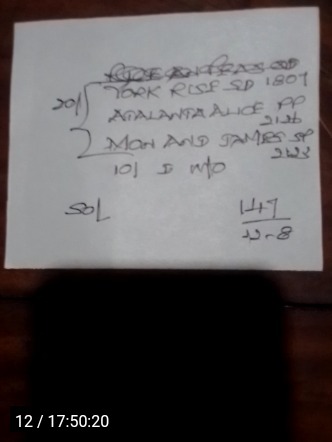 YORK RISE SD 1807
20/
ATALANTA ALICE PP
2126
MON AND JAMES SP
2123
10/ I W/O
50/
147
12-8
12 / 17:50:20